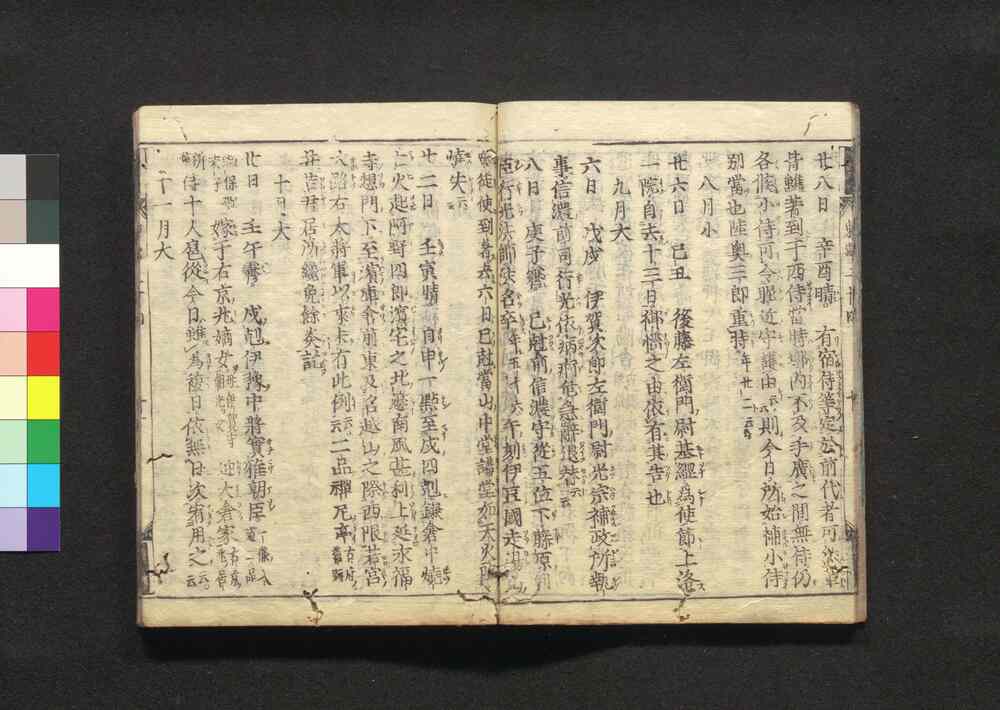 廿八日 辛酉晴 有宿侍等定於前代者可然
昔輩着到于西侍當時郷内不及手廣之間無侍仍
各儀小侍可令眤近守護由云則今日所始補小侍
別當也陸奥三郎重時年廿二云云
八月小
廿六日 己丑 後藤左衞門尉基綱爲使節上洛
上院自去十三日御惱之由依有其告也
九月大
六日 戊戌 伊賀次郎左衞門尉光宗補政所執
事信濃前司行光依病痾危急辭退替云云
八日 庚子霽 己尅前信濃守從五位下藤原朝
臣行光法師法名卒年五十六午刻伊豆國走湯山
衆徒使到著去六日巳尅當山中堂講堂如天火自
燒失云云
廿二日 壬寅晴 自申一點至戌四尅鎌倉中燒
亡火起阿野四郎濱宅之北邊南風甚利上延永福
寺惣門下至濱庫倉前東及名越山之際西限若宮
大路右大將軍以來未有此例云云二品禪尼亭
并若君居所纔免餘炎訖
十月大
廿日 壬午霽 戌尅伊豫中將實雅朝臣
嫁于右京兆嫡女迎大倉家
侍十人扈從今日雖爲複日依無日次宥用之云云
十一月大